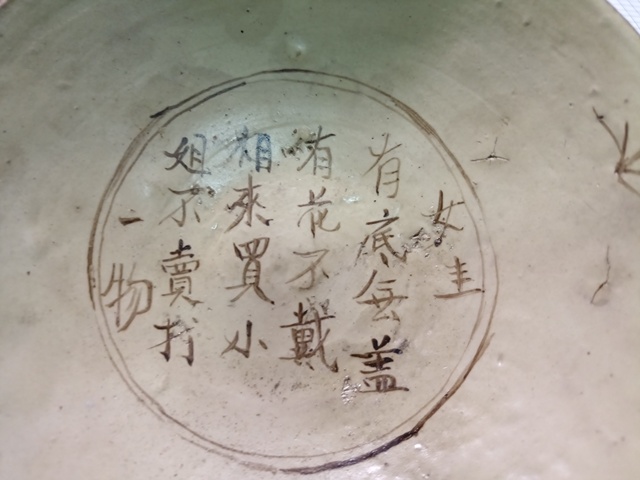 女圭
有底無盖
有花不戴
相來買小
姐不賣打
一物